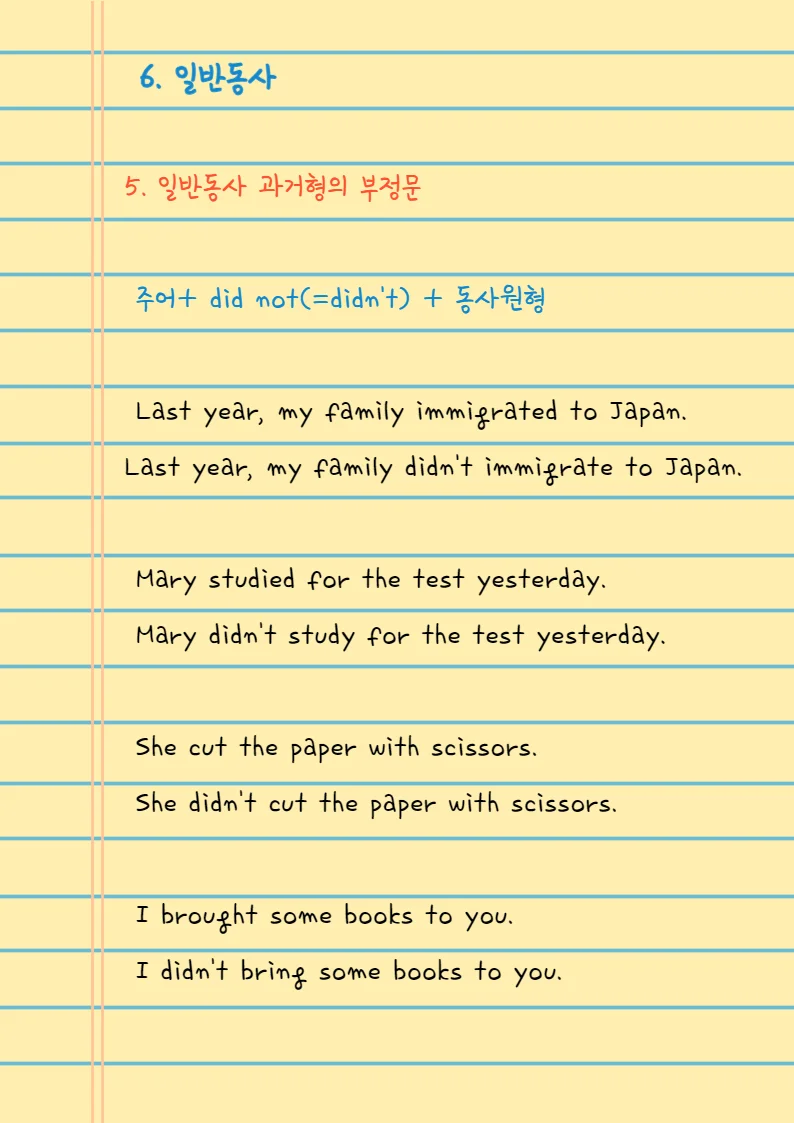 6. 일반동사
5. 일반동사 과거형의 부정문
주어+ did not(=didn't) + 동사원형
Last year, my family immigrated to Japan.
Last year, my family didn't immigrate to Japan.
Mary studied for the test yesterday.
Mary didn't study for the test yesterday.
She cut the paper with scissors.
She didn't cut the paper with scissors.
I brought some books to you.
I didn't bring some books to you.